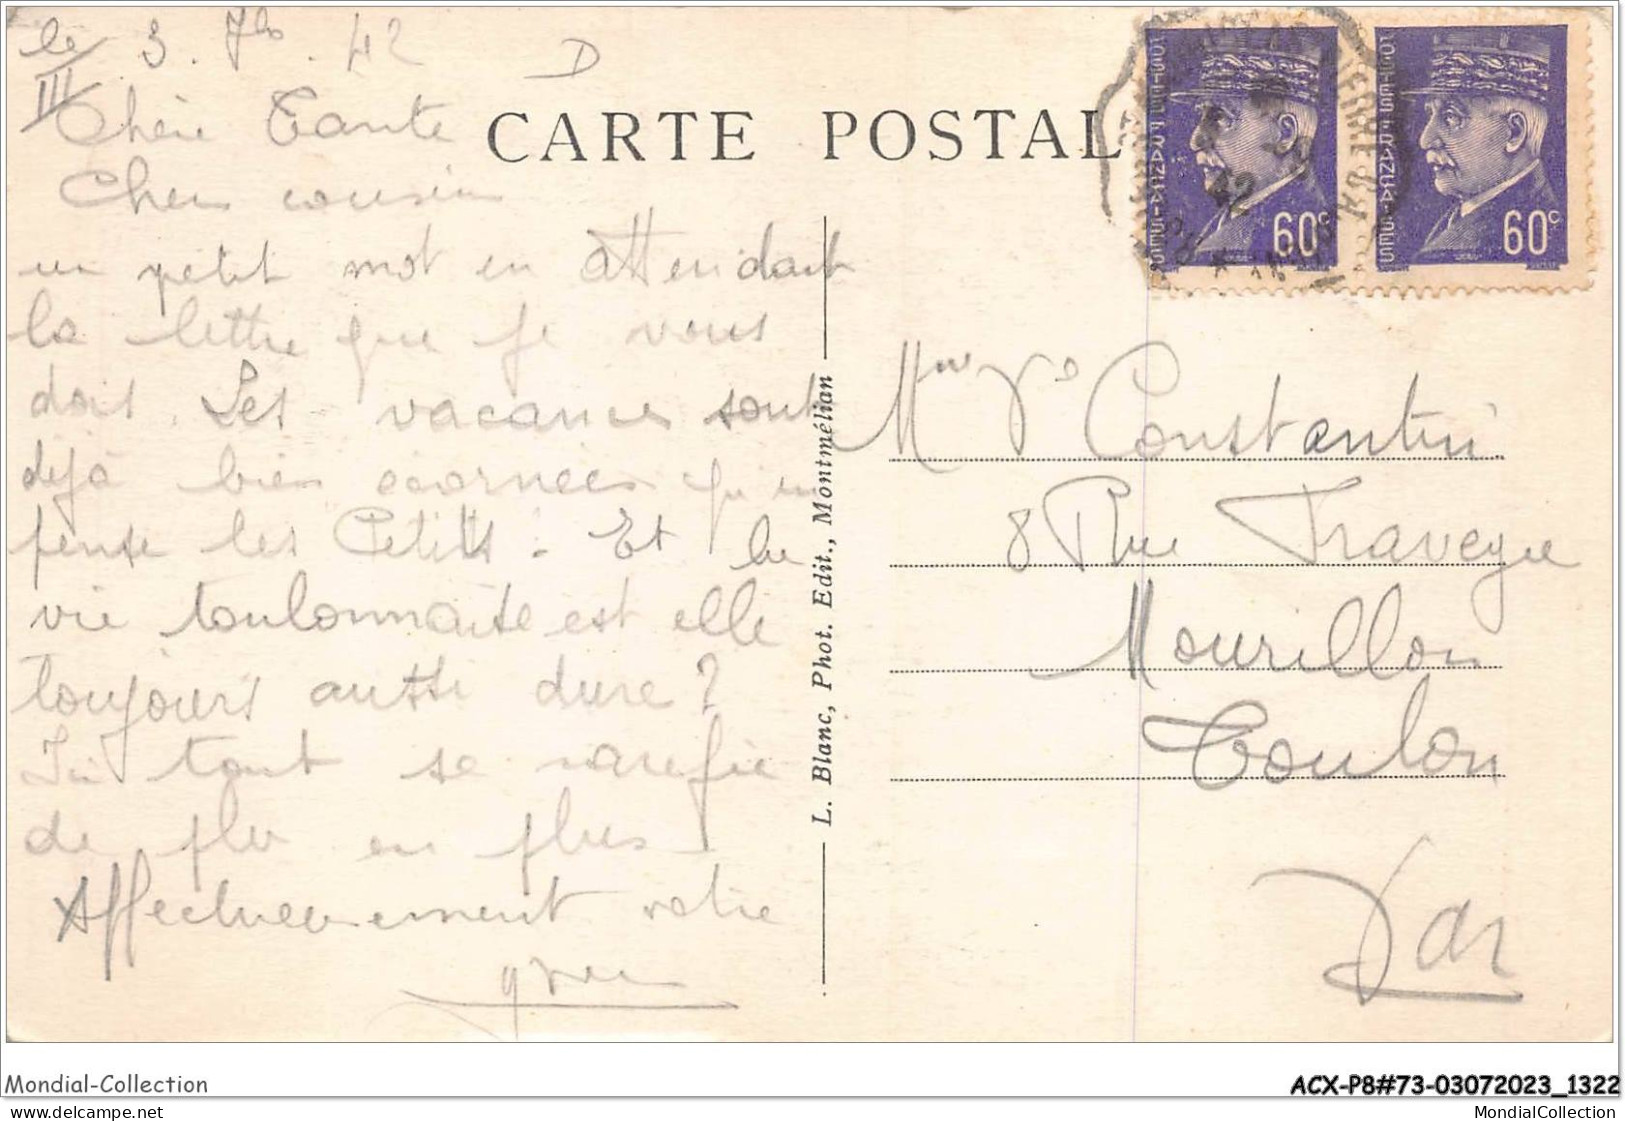 le 3. 7bre. 42
III
D
Chère Tante
Cher cousin
un petit mot en attendant
la lettre que je vous
dois. Les vacances sont
déjà bien écornées qu'en
pense les Petits. Et la
vie toulonnaise est elle
toujours aussi dure ?
Ici tout se raréfie
de plus en plus
Affectueusement votre
CARTE POSTAL
L. Blanc, Phot. Edit., Montmélian
POSTES FRANÇAISES
60c
42
POSTES FRANÇAISES
60c
Mme Vve Constantin
8 Rue Traveyre
Mourillon
Toulon
Var
Mondial-Collection
ACX-P8#73-03072023_1322
vieux papiers et cartes postales
MondialCollection